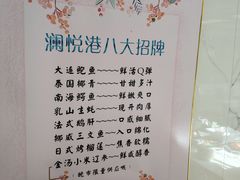 澜悦港八大招牌
大连鲍鱼——鲜活Q弹
泰国椰青——甘甜多汁
南海鳄鱼——鲜嫩爽口
乳山生蚝——现开肉厚
法式鹅肝——口感细腻
挪威三文鱼——入口绵化
日式烤榴莲——焦香软糯
金汤小米辽参——鲜咸醇香
（晚市限量供应哦）